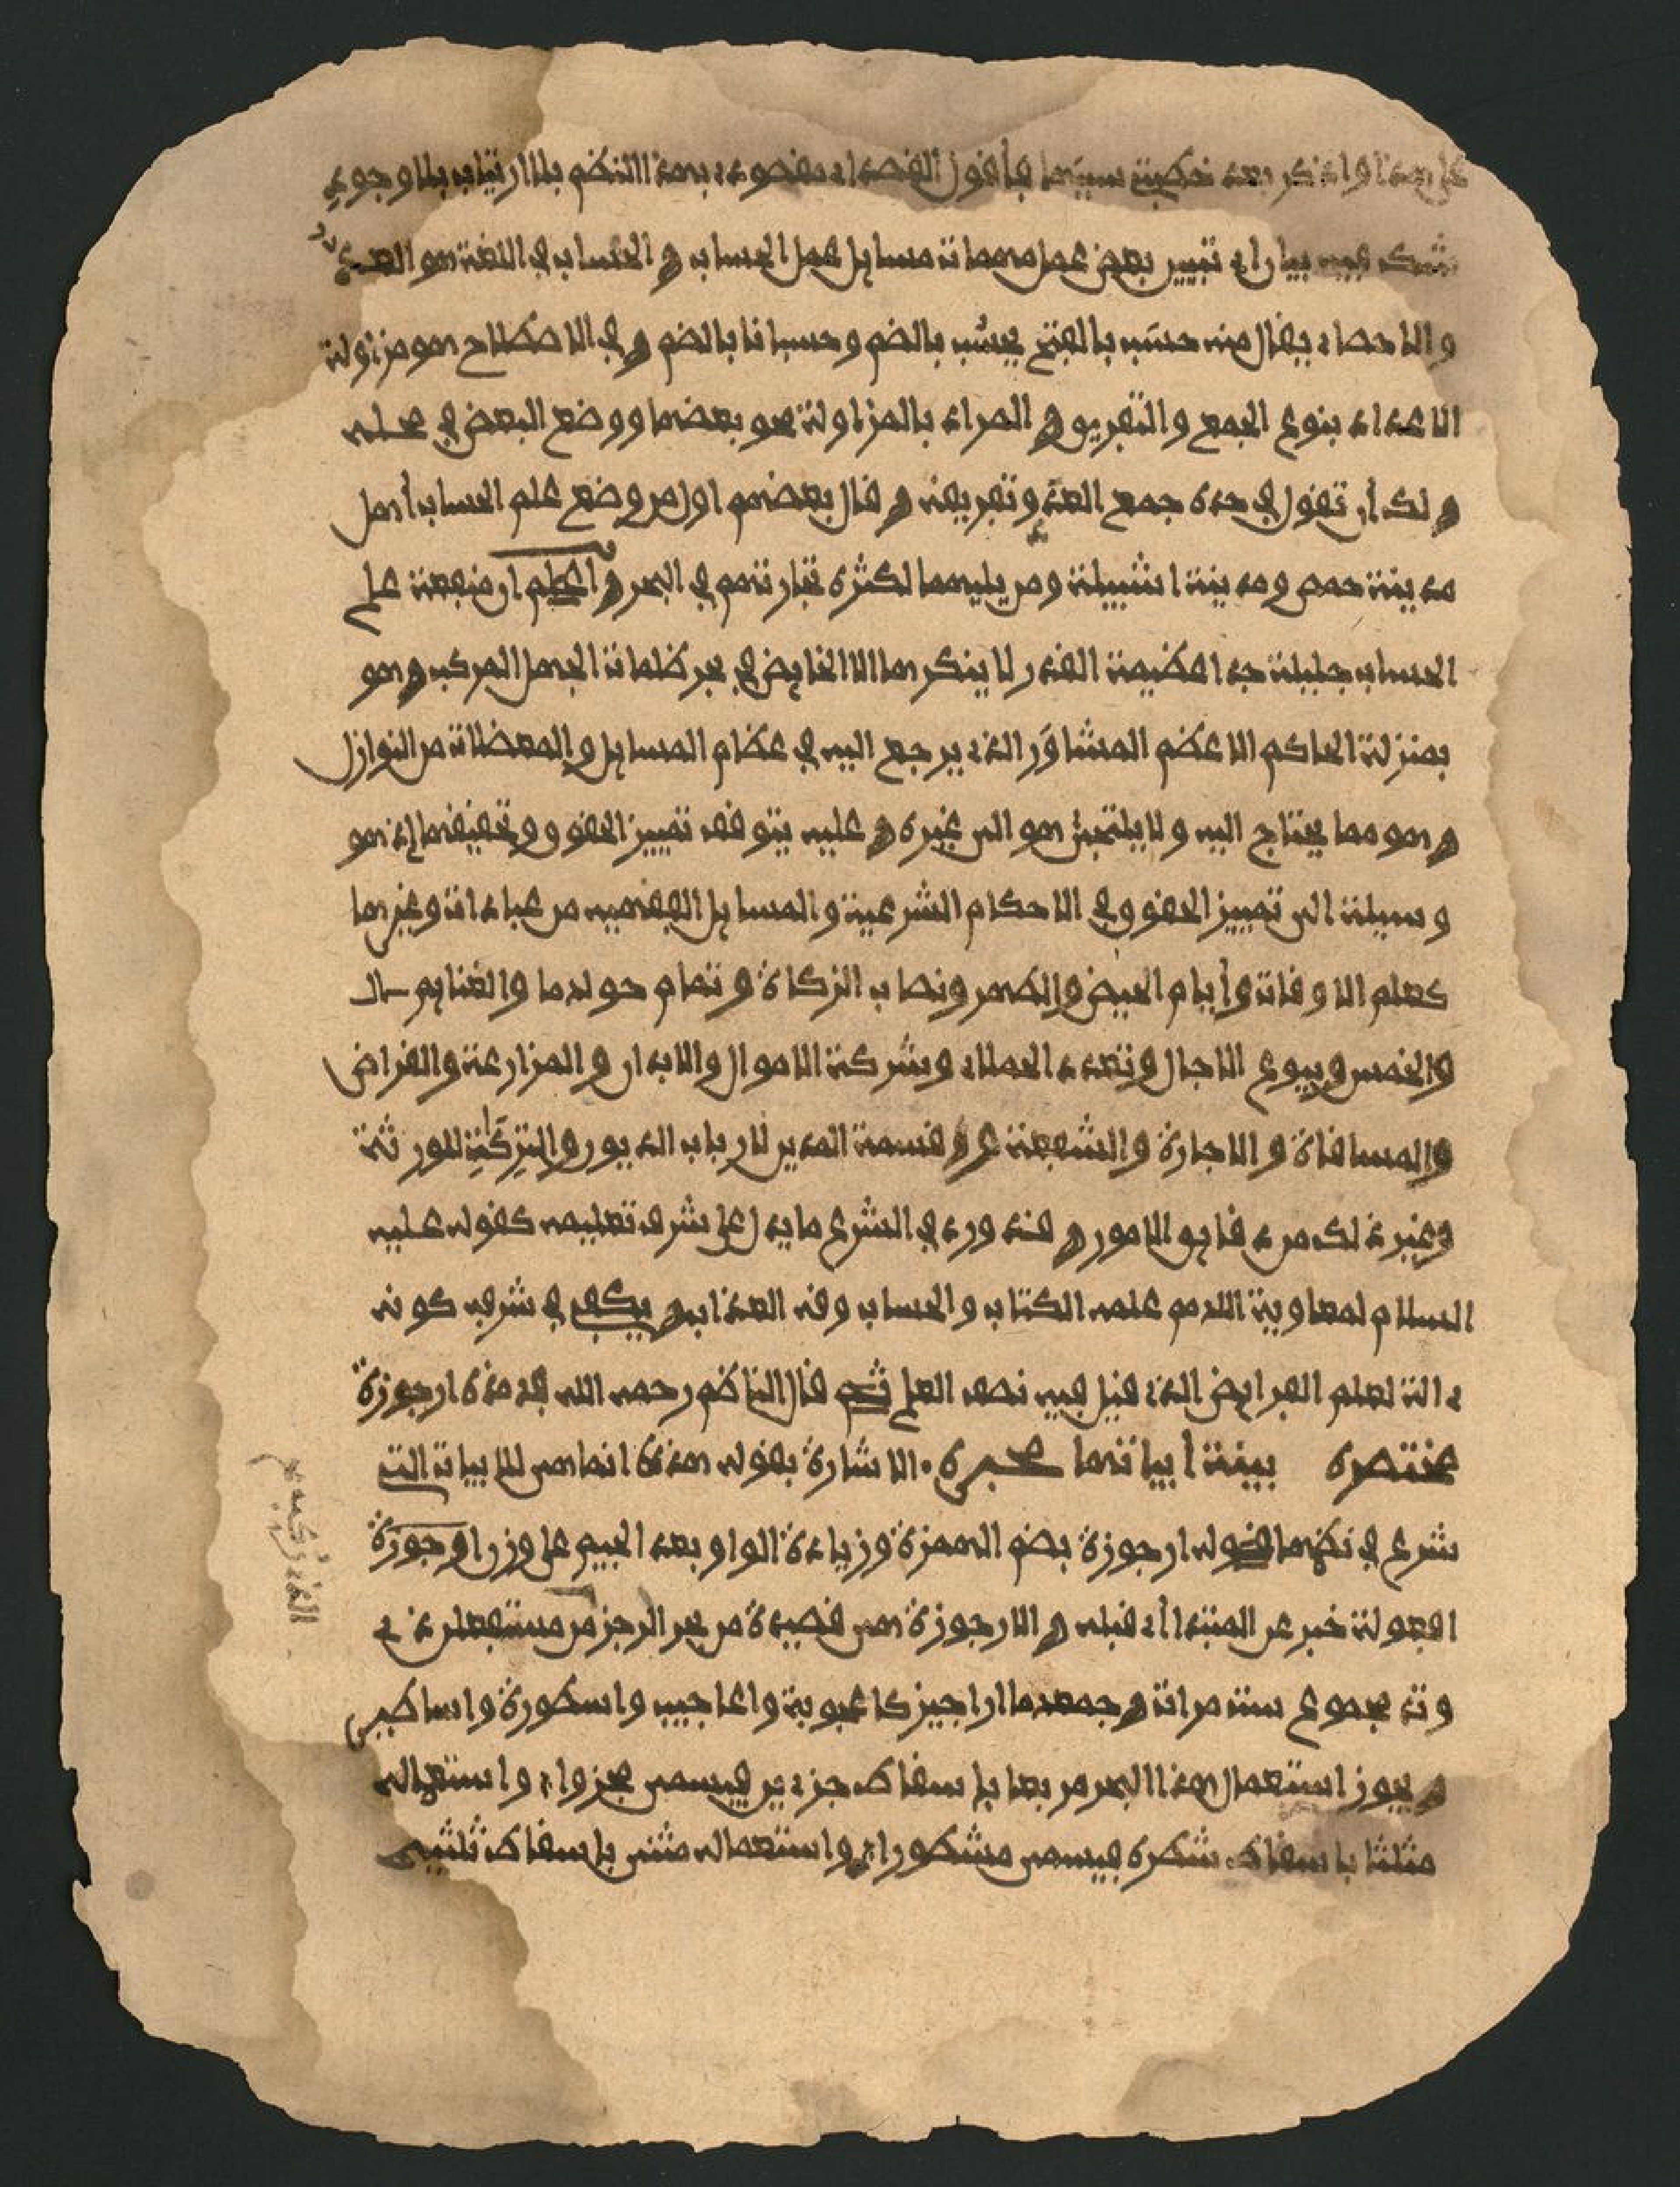 على هذا واذكر بعد خطبته سببها فأقول القصد اي مقصودي بهذا النظم بلا ارتياب بلا وجود
شك فيه بيان اي تبيين بعض عمل مهمات مسايل عمل الحساب والحساب في اللغة هو العدد
والاحصاء يقال منه حسَب بالفتح يحسُب بالضم وحسبانا بالضم وفي الاصطلاح هو مزاولة
الاعداد بنوع الجمع والتفريق والمراد بالمزاولة محو بعضها ووضع البعض في محله
ولك أن تقول في حده جمع العدد وتفريقه وقال بعضهم اول من وضع علم الحساب أهل
مدينة حمص ومدينة اشبيلة ومن يليهما لكثرة تجارتهم في البحر واعلم ان منفعة علم
الحساب جليلة جدا عظيمة القدر لا ينكرها الا الخايض في بحر ظلمات الجهل المركب وهو
بمنزلة الحاكم الاعظم المشاوَر الذي يرجع اليه في عظام المسايل والمعضلات من النوازل
وهو مما يحتاج اليه ولا يلتجئ هو الى غيره وعليه يتوقف تمييز الحقوق وتحقيقها إذ هو
وسيلة الى تمييز الحقوق في الاحكام الشرعية والمسايل الفقهيه من عبادات وغيرها
كعلم الاوقات وأيام الحيض والطهر ونصاب الزكاة وتمام حولها والغنايم
والخمس وبيوع الاجال وتعدد الحملاء وشركة الاموال والابدان والمزارعة والقراض
والمساقاة والاجارة والشفعة وقسمة المدين لارباب الديون والتركة للورثة
وغير ذلك من دقايق الامور وقد ورد في الشرع ما يدل على شرف تعليمه كقوله عليه
السلام لمعاوية اللهم علمه الكتاب والحساب وقه العذاب ويكفي في شرفه كونه
ءالة لعلم الفرايض الذي قيل فيه نصف العلم ثم قال الناظم رحمه الله فهذه ارجوزة
مختصره بينة أبياتها محبره الاشارة بقوله هذه انما هى للابيات التي
شرع في نظمها وقوله ارجوزة بضم الهمزة وزيادة الواو بعد الجيم على وزن اوجوزة
افعولة خبر عن المبتدا أي قبله والارجوزة هى قصيدة من بحر الرجز من مستفعلن ذي
وتد مجموع ست مرات وجمعها اراجيز كاعبوبة واعاجيب واسطورة واساطير
ويجوز استعمال هذا البحر مربعا باسقاط جزءين فيسمى مجزوا واستعماله
مثلثا باسقاط شطره فيسمى مشطورا واستعماله مثنى باسقاط ثلثيه